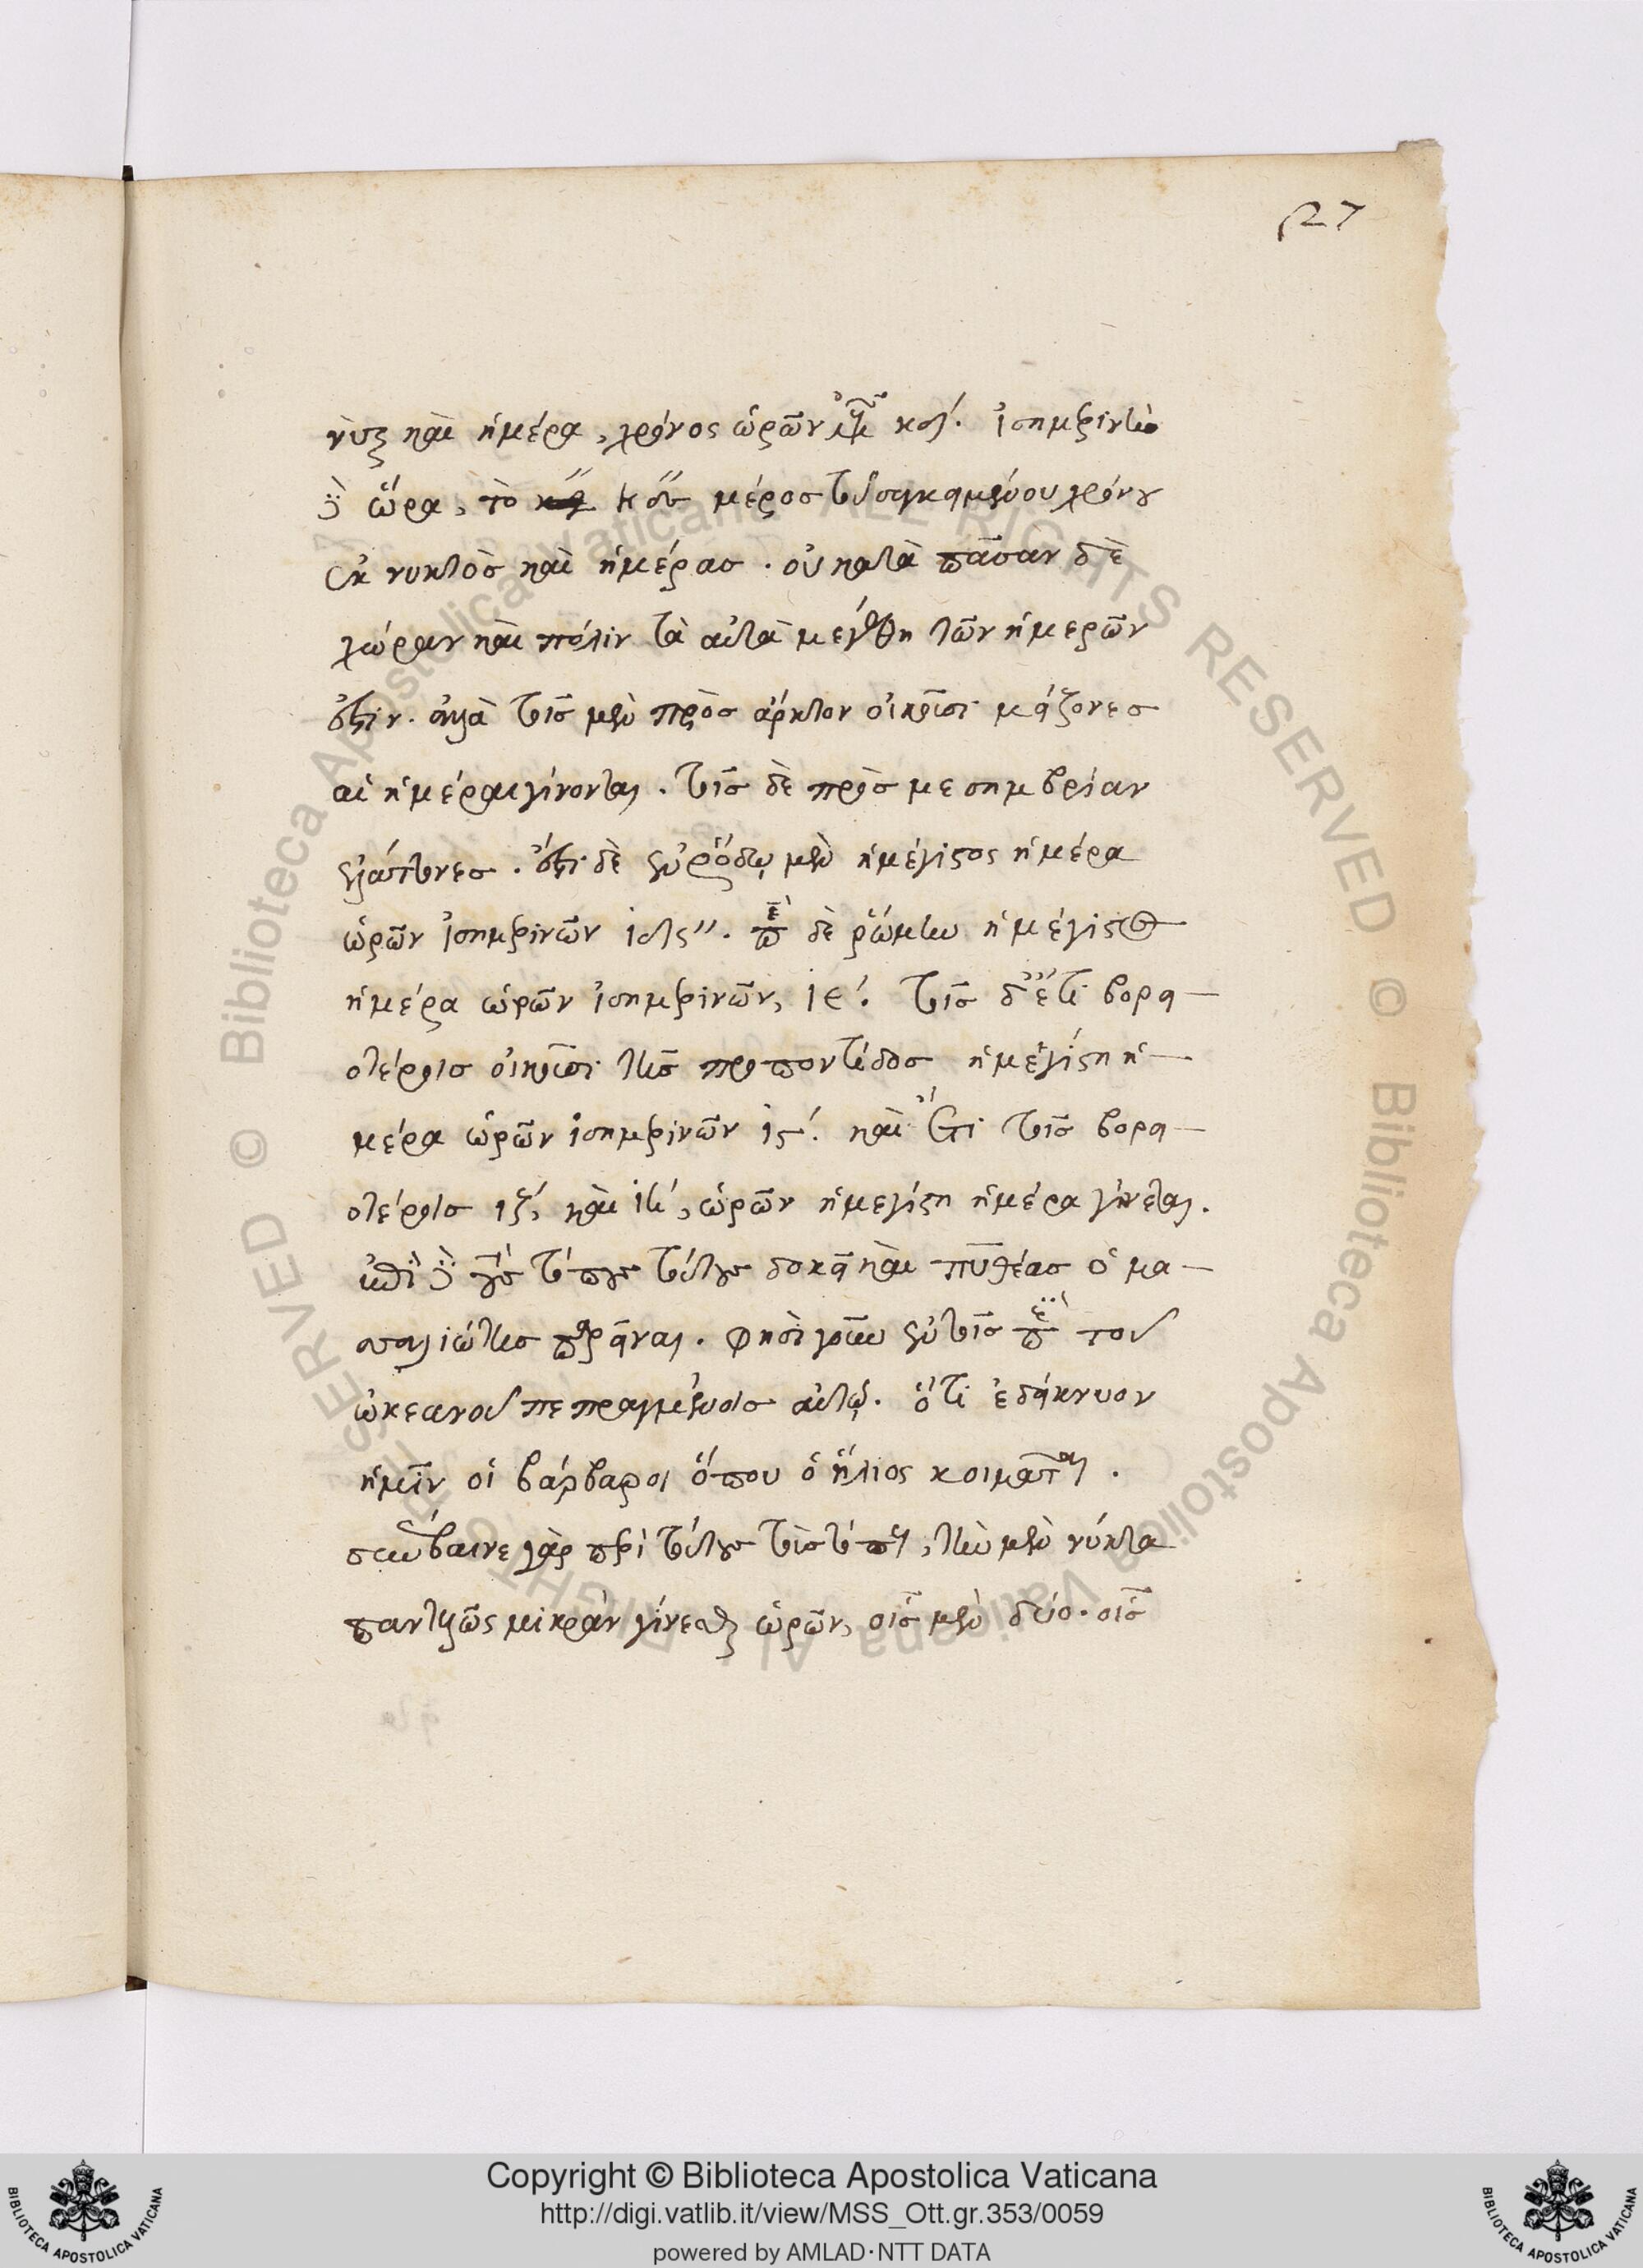 27
νὺξ καὶ ἡμέρα, χρόνος ὡρῶν ἰσημερινῶν κδ΄. ἰσημερινὴ
δὲ ὥρα, τὸ κδ΄΄ κδον μέρος τοῦ συγκειμένου χρόνου
ἐκ νυκτὸς καὶ ἡμέρας. οὐ κατὰ πᾶσαν δὲ
χώραν καὶ πόλιν τὰ αὐτὰ μεγέθη τῶν ἡμερῶν
ἐστιν. ἀλλὰ τοῖς μὲν πρὸς ἄρκτον οἰκοῦσι μείζονες
αἱ ἡμέραι γίνονται. τοῖς δὲ πρὸς μεσημβρίαν
ἐλάττονες. ἔστι δὲ ἐν ῥόδῳ μὲν ἡ μέγιστος ἡμέρα
ὡρῶν ἰσημερινῶν ιδς΄΄. περὶ δὲ ῥώμην ἡ μέγιστος
ἡμέρα ὡρῶν ἰσημερινῶν, ιε΄. τοῖς δ' ἔτι βορει
οτέροις οἰκοῦσι τῆς προποντίδος ἡ μεγίστη ἡ
μέρα ὡρῶν ἰσημερινῶν ις΄. καὶ ἔτι τοῖς βορει
οτέροις ιζ΄, καὶ ιη΄, ὡρῶν ἡ μεγίστη ἡμέρα γίνεται.
ἐπὶ δὲ τοὺς τόπους τούτους δοκεῖ καὶ πυθέας ὁ μα
σσαλιώτης παρεῖναι. φησὶ γοῦν ἐν τοῖς περὶ τοῦ
ὠκεανοῦ πεπραγμένοις αὐτῷ. ὅτι ἐδείκνυον
ἡμῖν οἱ βάρβαροι ὅπου ὁ ἥλιος κοιμᾶται.
συνέβαινε γὰρ περὶ τούτους τοὺς τόπους, τὴν μὲν νύκτα
παντελῶς μικρὰν γίνεσθαι ὡρῶν, οἷς μὲν δύο. οἷς
Copyright © Biblioteca Apostolica Vaticana
http://digi.vatlib.it/view/MSS_Ott.gr.353/0059
powered by AMLAD·NTT DATA
BIBLIOTECA APOSTOLICA VATICANA
BIBLIOTECA APOSTOLICA VATICANA
© Biblioteca Apostolica Vaticana ALL RIGHTS RESERVED
© Biblioteca Apostolica Vaticana ALL RIGHTS RESERVED